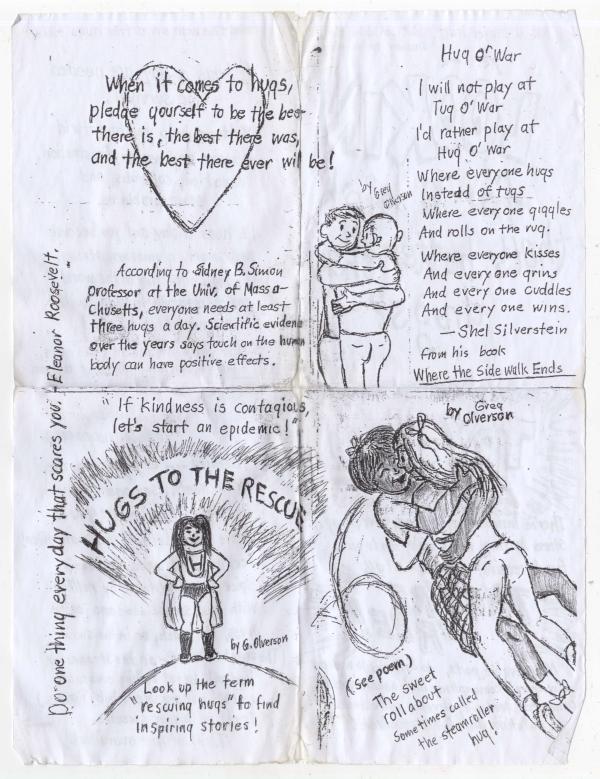 When it comes to hugs,
pledge yourself to be the best
there is, the best there was,
and the best there ever will be!
According to Sidney B. Simon
Professor at the Univ. of Massa-
chusetts, everyone needs at least
three hugs a day. Scientific evidence
over the years says touch on the human
body can have positive effects.
Hug O' War
I will not play at
Tug O' War
I'd rather play at
Hug O' War
Where everyone hugs
Instead of tugs
Where everyone giggles
And rolls on the rug.
Where everyone kisses
And every one grins
And every one cuddles
And every one wins.
— Shel Silverstein
from his book
Where the Side walk Ends
by Greg
Olverson
Do one thing every day that scares you. - Eleanor Roosevelt.
"If kindness is contagious,
let's start an epidemic!"
HUGS TO THE RESCUE
by G. Olverson
Look up the term
"rescuing hugs" to find
inspiring stories!
by Greg
Olverson
(see poem)
The sweet
roll about
Sometimes called
the steamroller
hug!